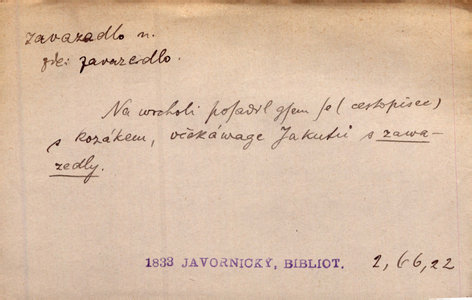 zavazedlo n.
vde: zavazedlo.
Na wrcholi posadil gsem se (cestopisec)
s kozákem, očekáwage Jakutů s zawa-
zedly.
1833 JAVORNICKÝ, BIBLIOT. 2, 66, 22